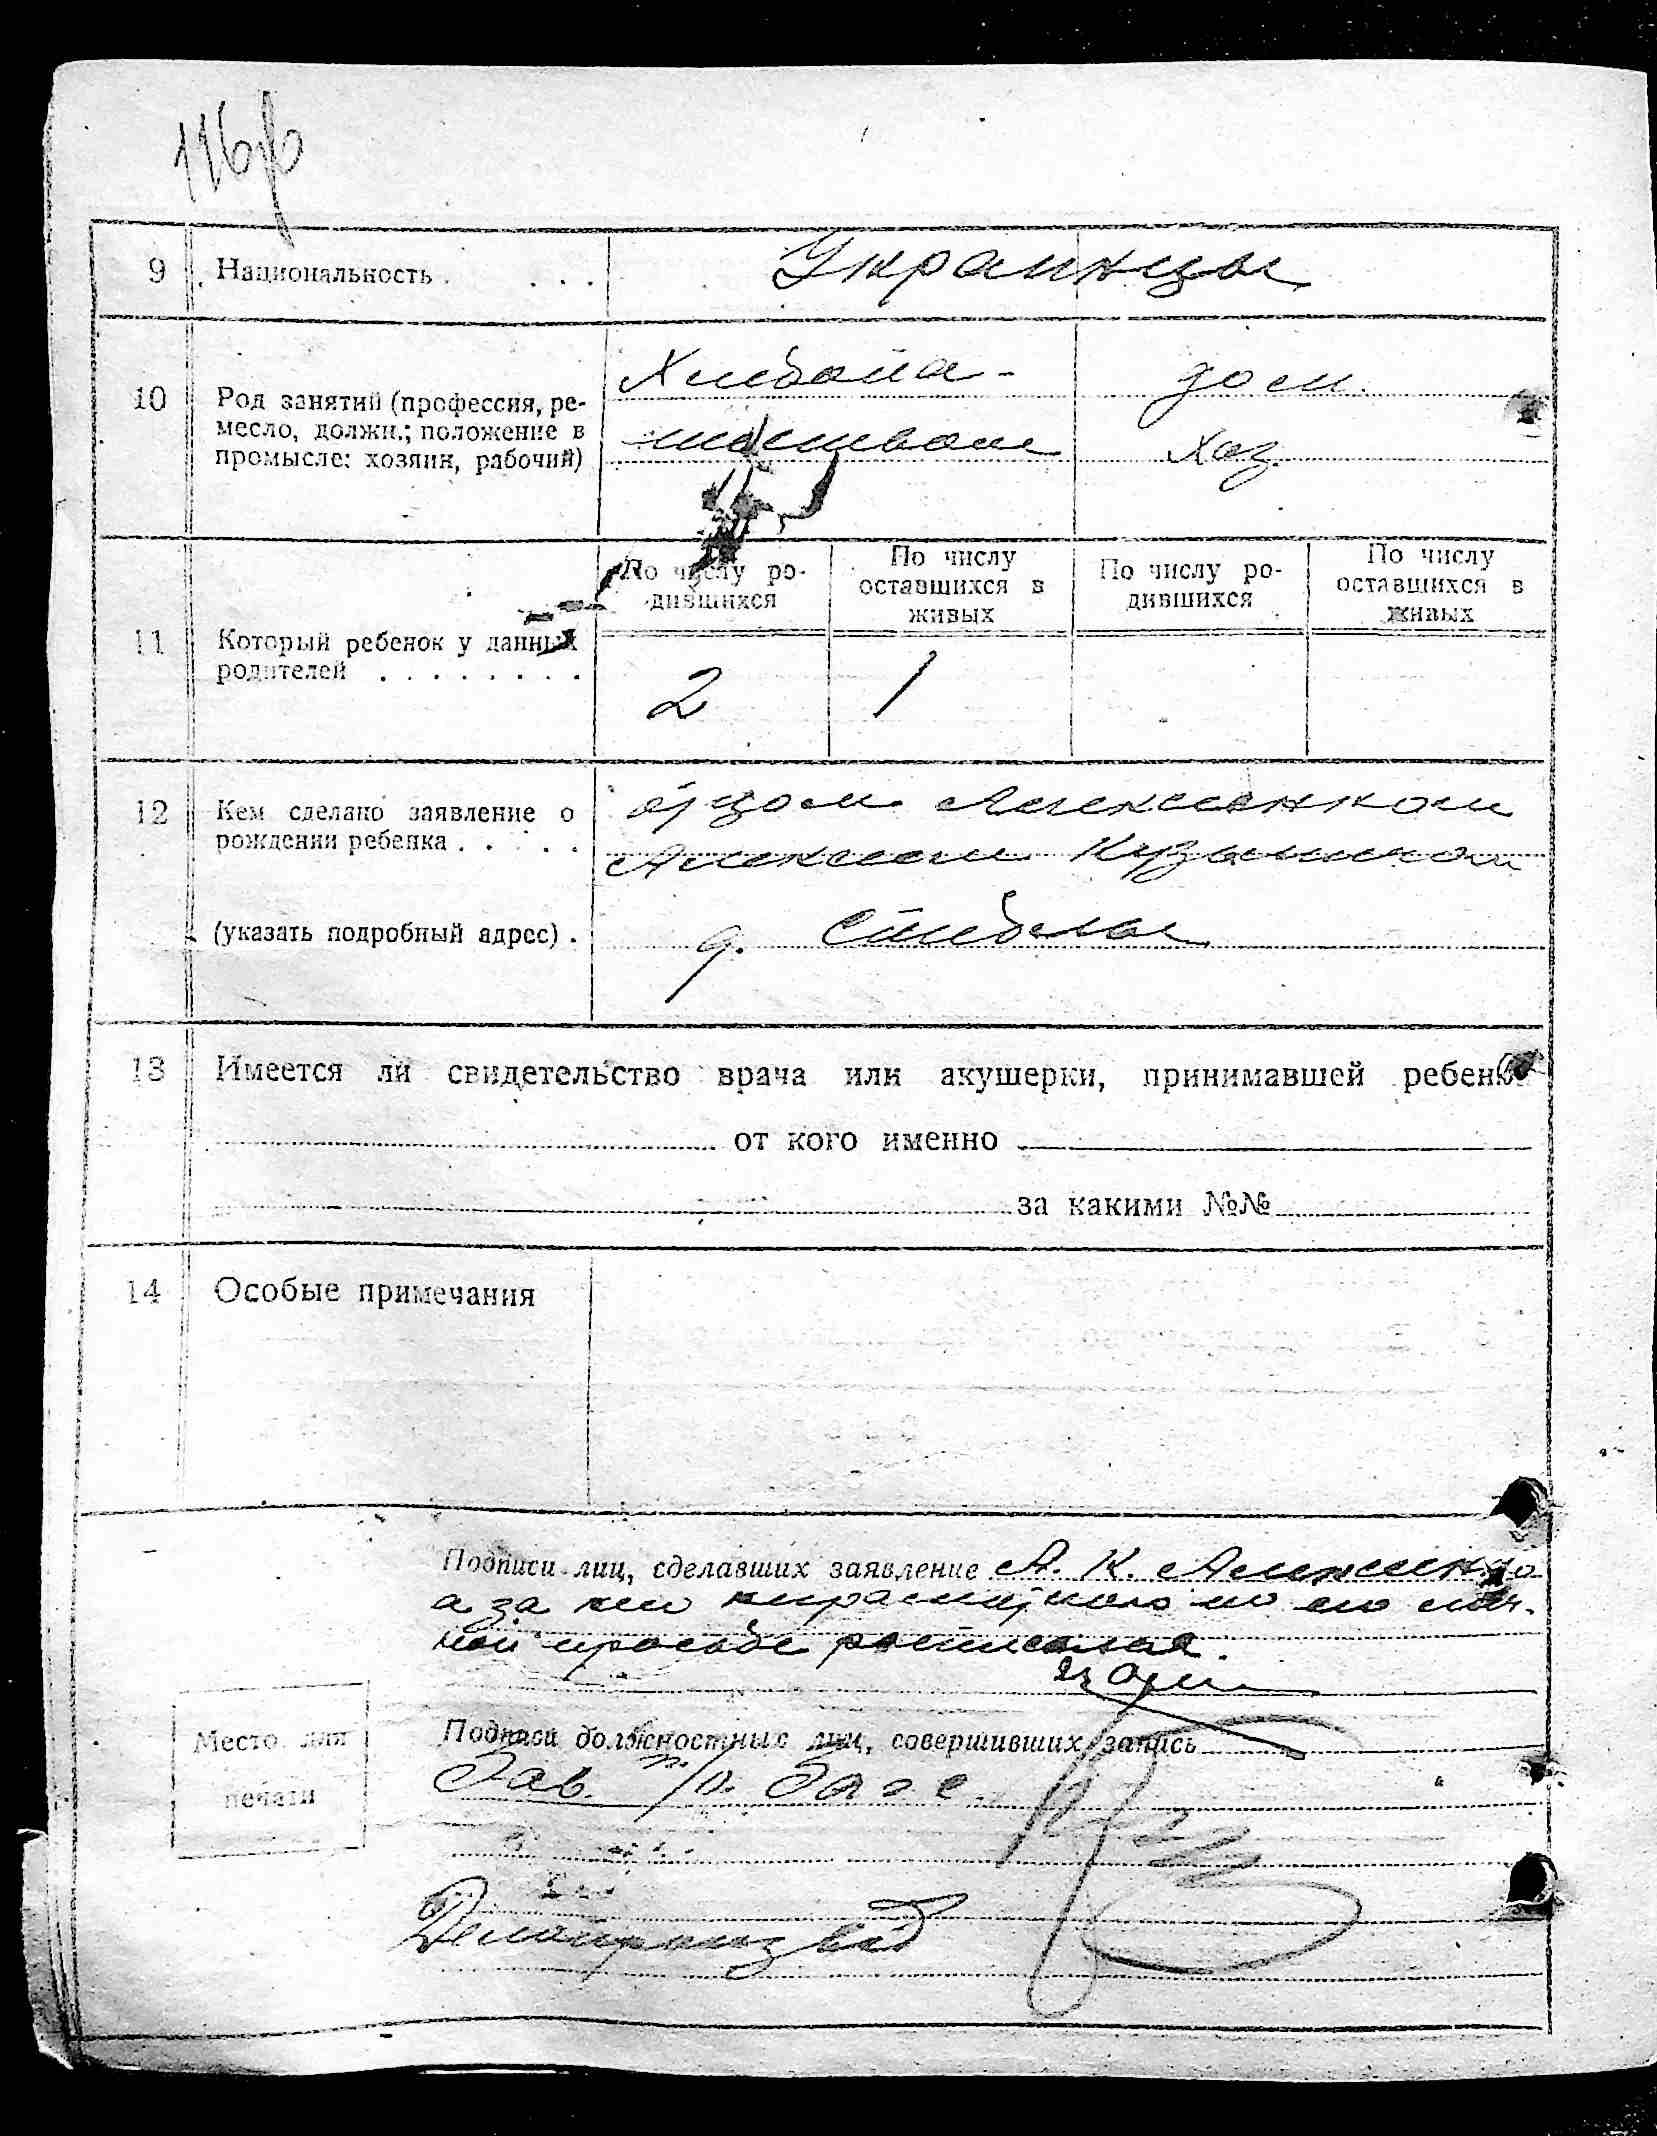 116об
9 Национальность . . . . Украинцы
10 Род занятий (профессия, ре-
месло, должн.; положение в
промысле: хозяин, рабочий)
Хлебопа-
шеством
дом.
хоз.
11 Который ребенок у данных
родителей . . . . . . . .
По числу ро-
дившихся
По числу
оставшихся в
живых
По числу ро-
дившихся
По числу
оставшихся в
живых
2 1
12 Кем сделано заявление о
рождении ребенка . . . . .
отцом Алексеенком
Алексеем Кузьмичом
(указать подробный адрес) . д.
13 Имеется ли свидетельство врача или акушерки, принимавшей ребенка
от кого именно
за какими №№
14 Особые примечания
Подписи лиц, сделавших заявление А. К. Алексеенко
а за него неграмотного по его лич-
ной просьбе расписался
Место для
печати
Подписи должностных лиц, совершивших запись
Зав. п/о. Загс
Делопроизвод